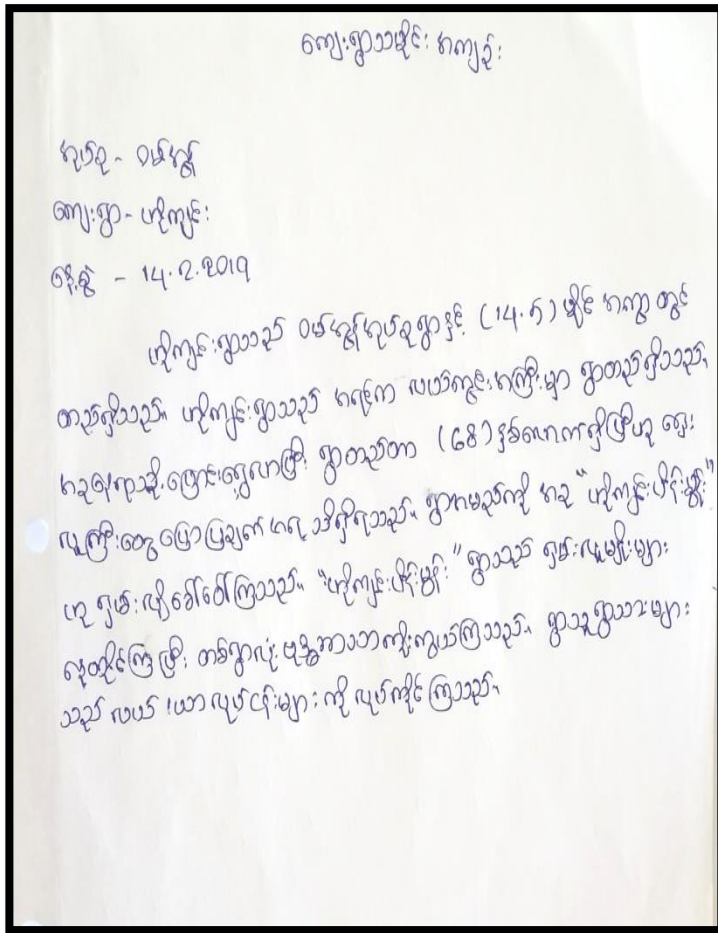 ကျေးရွာသမိုင်း အကျဉ်း
အုပ်စု - ဝမ်အွန်
ကျေးရွာ - ဟိုကျင်း
နေ့စွဲ - 14.2.2019
ဟိုကျင်းရွာသည် ဝမ်အွန်အုပ်စုရွာနှင့် (14.5) မိုင် အကွာ တွင်
တည်ရှိသည်။ ဟိုကျင်းရွာသည် အရင်က လယ်ကွင်းအကြီးမှာ ရွာတည်ရှိသည်။
အခုနေရာသို့ ပြောင်းရွှေ့လာပြီး ရွာတည်တာ (68) နှစ်လောက်ရှိပြီဟု ရှေး
လူကြီးတွေ ပြောပြချက်အရ သိရှိရသည်။ ရွာအမည်ကို အခု "ဟိုကျင်း
ဟု ရှမ်းလိုခေါ်ဝေါ်ကြသည်။ "ဟိုကျင်း ရွာသည် ရှမ်းလူမျိုးများ
နေထိုင်ကြပြီး တစ်ရွာလုံး ဗုဒ္ဓဘာသာကိုးကွယ်ကြသည်။ ရွာသူရွာသားများ
သည် လယ် ၊ယာ လုပ်ငန်းများ ကို လုပ်ကိုင်ကြသည်။